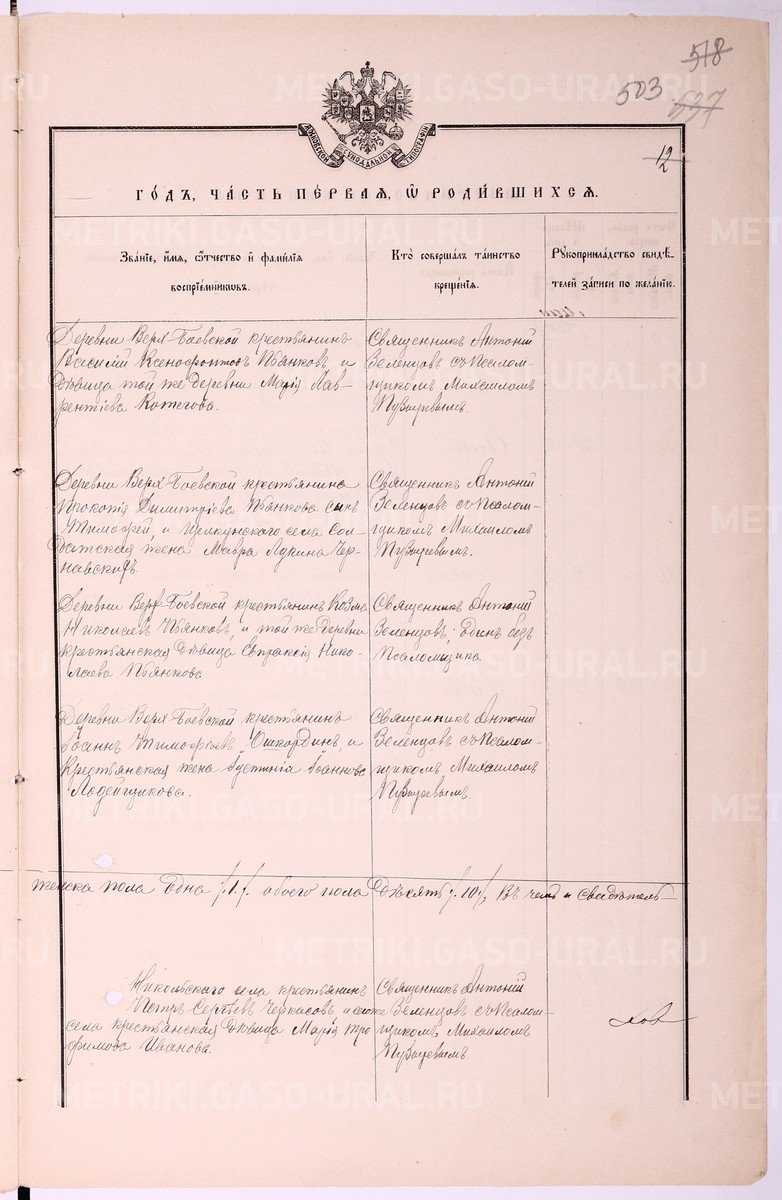 518
503 537
МОСКОВСКОЙ СѴНОДАЛЬНОЙ ТИПОГРАФІИ
12
ГО́ДЪ, ЧА́СТЬ ПЕ́РВАЯ, Ѡ҆ РОДИ́ВШИХСЯ.
Зва́нїе, и҆́мя, ѻ҆́тчество и҆ фамѝлїя
воспрїе́мниковъ.
Кто̀ соверша́лъ та́инство
креще́нїя.
Рꙋкоприкла́дство свидѣ́-
телей за́писи по жела́нїю.
Деревни Верх-Боевской крестьянинъ
Василій Ксенофонтовъ Пьянковъ, и
дѣвица той же деревни Марія Лав-
рентіева Котегова.
Священникъ Антоній
Зеленцовъ съ псалом-
щикомъ Михаиломъ
Пузыревымъ.
Деревни Верх-Боевской крестьянина
Прокопія Димитріева Пьянкова сынъ
Тимофей, и Щелкунскаго села Сол-
датская жена Мавра Лукина Чер-
навскихъ
Священникъ Антоній
Зеленцовъ съ псалом-
щикомъ Михаиломъ
Пузыревымъ.
Деревни Верх-Боевской крестьянинъ Козма
Николаевъ Пьянковъ, и той же деревни
крестьянская дѣвица Евпраксія Нико-
лаева Пьянкова
Священникъ Антоній
Зеленцовъ, одинъ безъ
псаломщика
Деревни Верх-Боевской крестьянинъ
Іоаннъ Тимофіевъ Ошкординъ, и
Крестьянская жена Іустинія Іоаннова
Ладейщикова.
Священникъ Антоній
Зеленцовъ съ псалом-
щикомъ Михаиломъ
Пузыревымъ.
женска пола одна /.1./ обоего пола десять /.10./, въ чемъ и свидѣтель-
Никольскаго села крестьянинъ
Петръ Сергѣевъ Черкасовъ и того же
села крестьянская дѣвица Марія Тро-
фимова Иванова.
Священникъ Антоній
Зеленцовъ съ псалом-
щикомъ Михаиломъ
Пузыревымъ
ховъ
METRIKI.GASO-URAL.RU